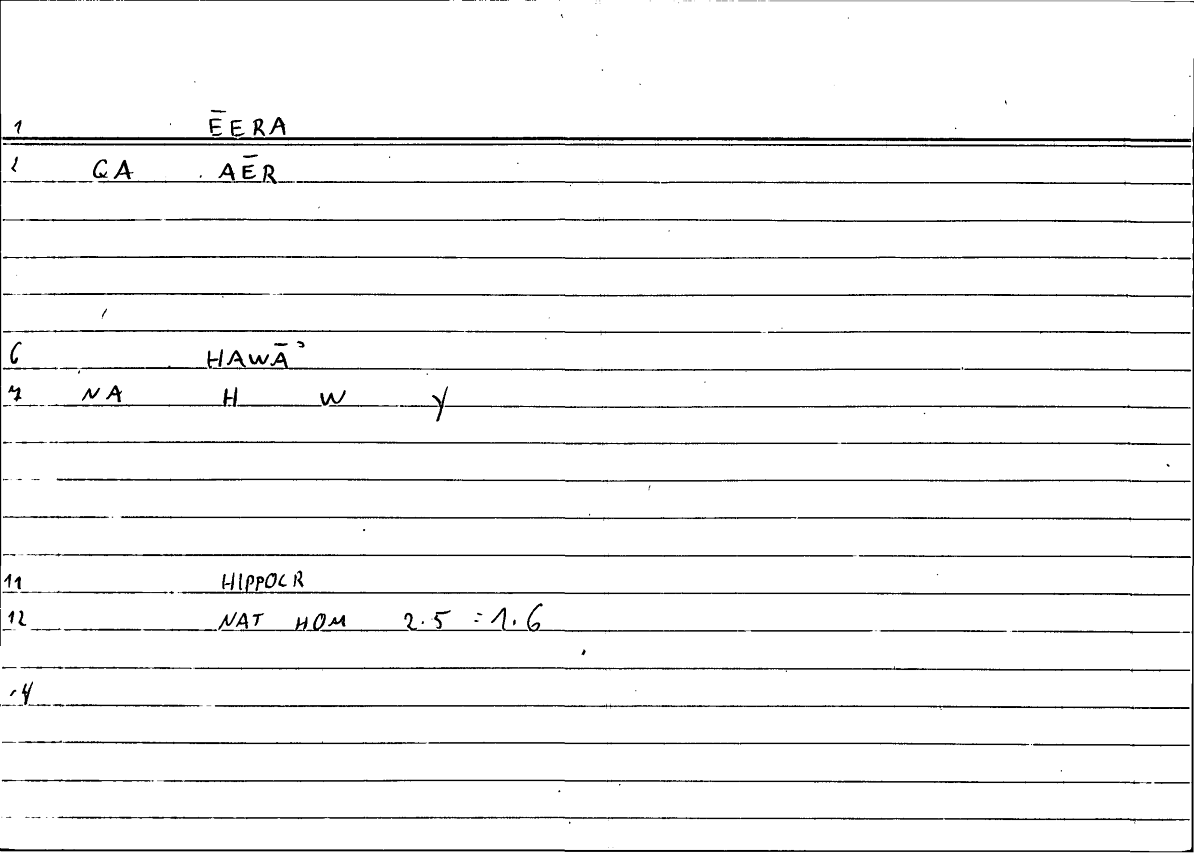 1 ĒERA
2 GA AĒR
6 HAWĀʾ
7 NA H W Y
11 HIPPOCR
12 NAT HOM 2.5 = 1.6
14